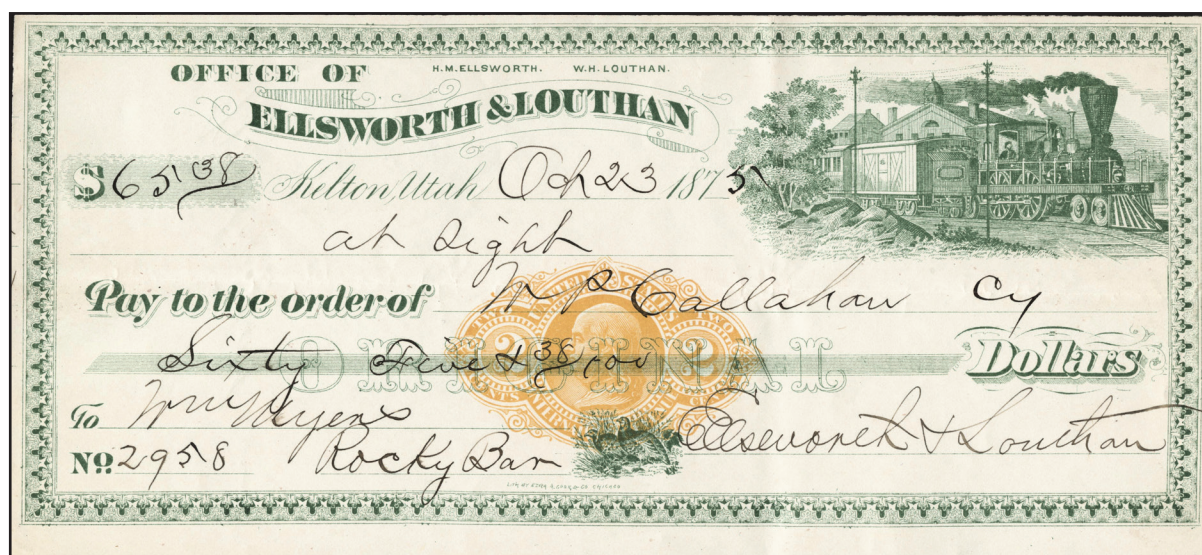 OFFICE OF H.M.ELLSWORTH. W.H. LOUTHAN.
ELLSWORTH & LOUTHAN
$ 65 38 Kelton, Utah Oct 23 1875
at sight
Pay to the order of W P Callahan Cy
Sixty Five & 38/100 Dollars
ORIGINAL
UNITED STATES
2 2
To Wm Myers Ellsworth & Louthan
No 2958 Rocky Bar